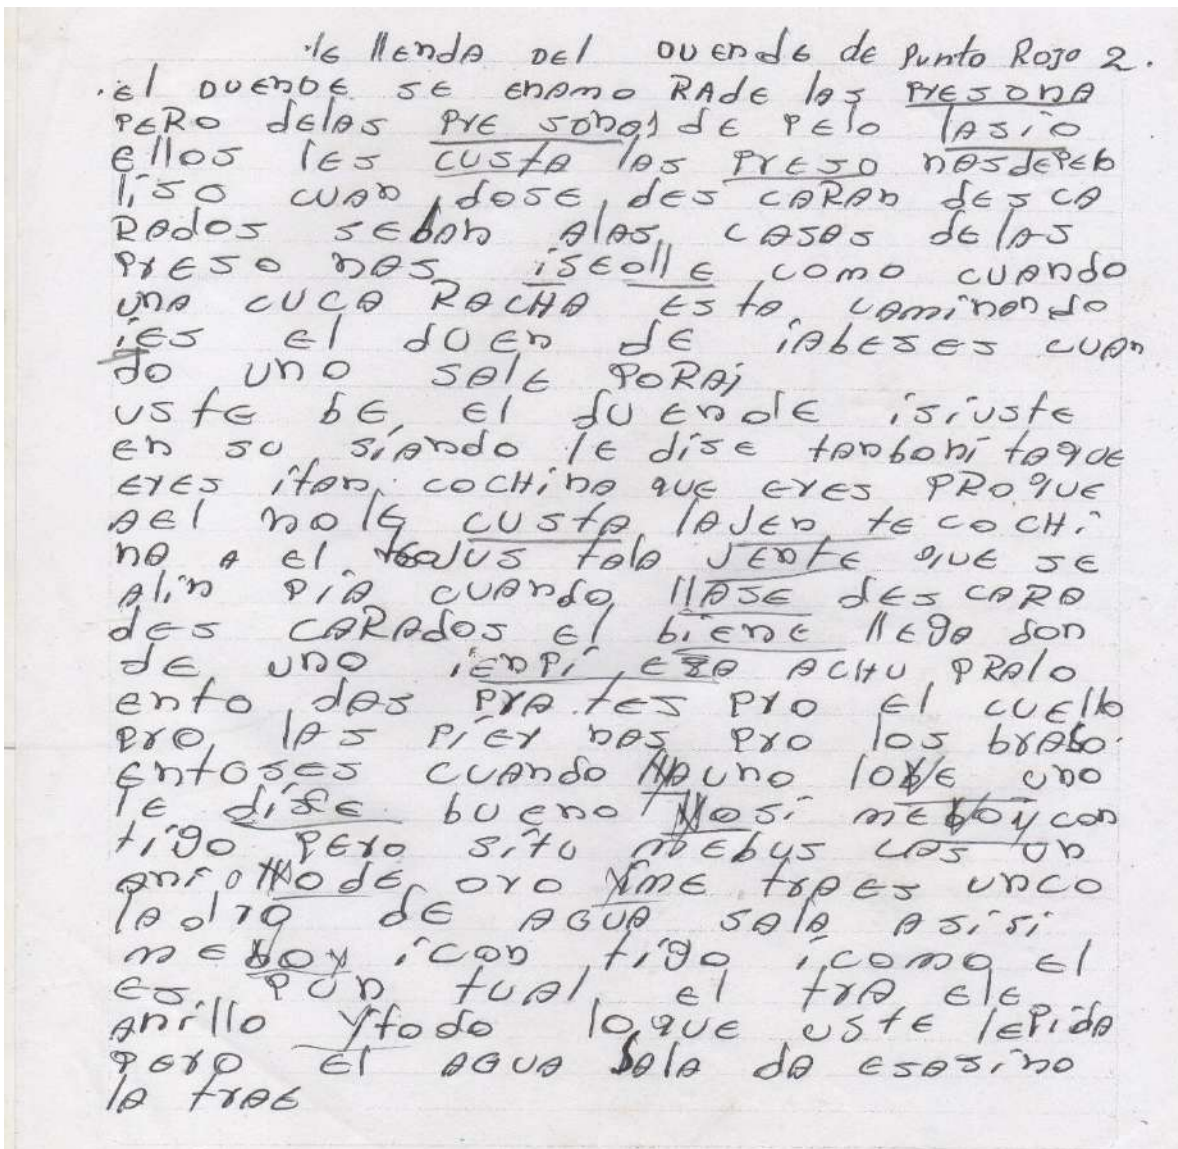 le llenda DEl DUEnde de Punto Rojo 2.
.El DUENDE SE EnAmo RAdE lAS PrESONA
PERO dElAS PrE SonAs dE PElo lASio
Ellos lES CUSTA lAS PrESO nASdEPElo
liSO CUAn dOSE dES CARAn dESCA
RAdOS SEbAn AlAS CASAS dElAS
PrESO nAS iSEollE COmO CUAndo
UnA CUCA RACHA ESTA CAminAndo
iES El dUEn dE iAbESES CUAn
do Uno SAlE PORAi
USTE bE El dUEndE iSiUSTE
En SU SiAndo lE diSE TAnboni TAqUE
ErES iTAn COCHinA qUE ErES PROqUE
AEl nolE CUSTA lAJEn TE COCHi
nA A El lEJUS TAlA JEnTE qUE SE
Alin PiA CUAndo llASE dES CARA
dES CARAdOS El biEnE llEgA don
dE Uno iEnPi EZA ACHU PRAlo
EnTo dAS PrA TES Pro El CUEllo
Pro lAS PiEr nAS Pro los brASo
EnTOSES CUAndo YA Uno lobE Uno
lE diSE bUEno YoSi mEboy con
Tigo PEro SiTU mEbUS CAS Un
Ani llo dE oro YimE TrAES Unco
lAdro dE AGUA SAlA ASiSi
mEboy iCon Tigo iComo El
ES PUn TUAl El TrA ElE
Anillo yTodo loqUE USTE lEPidA
PEro El AGUA SAlA dA ESASino
lA TrAE